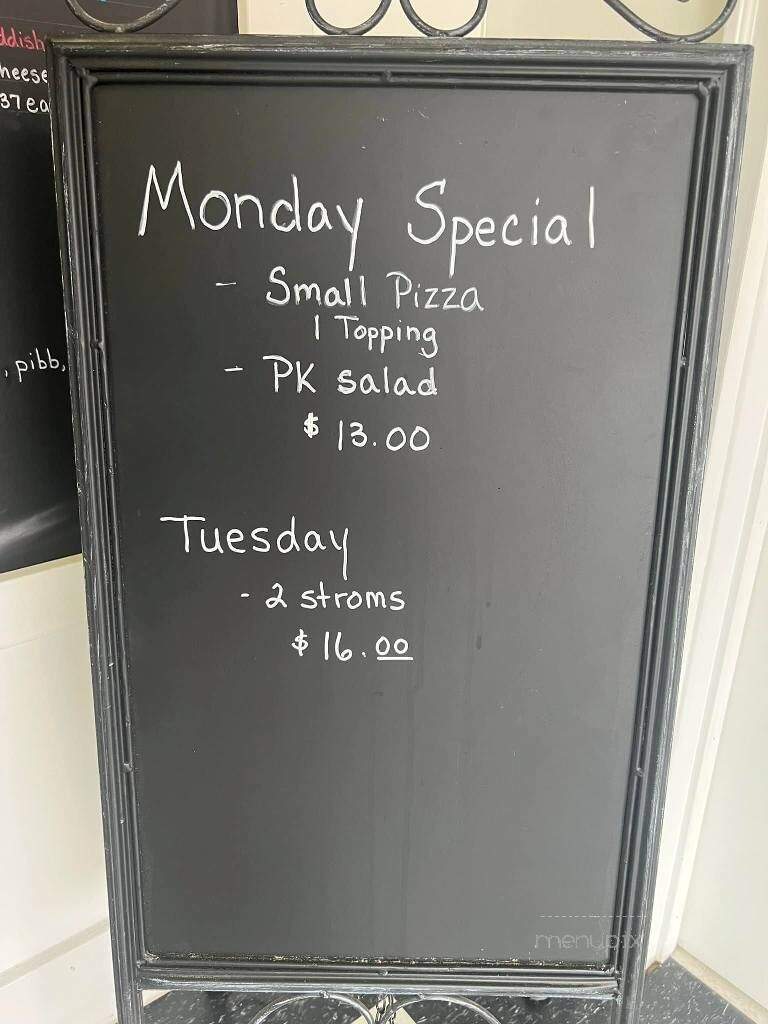 ddish
heese
37 ea
, pibb,
Monday Special
- Small Pizza
1 Topping
- PK salad
$ 13.00
Tuesday
- 2 stroms
$ 16.00
menupix